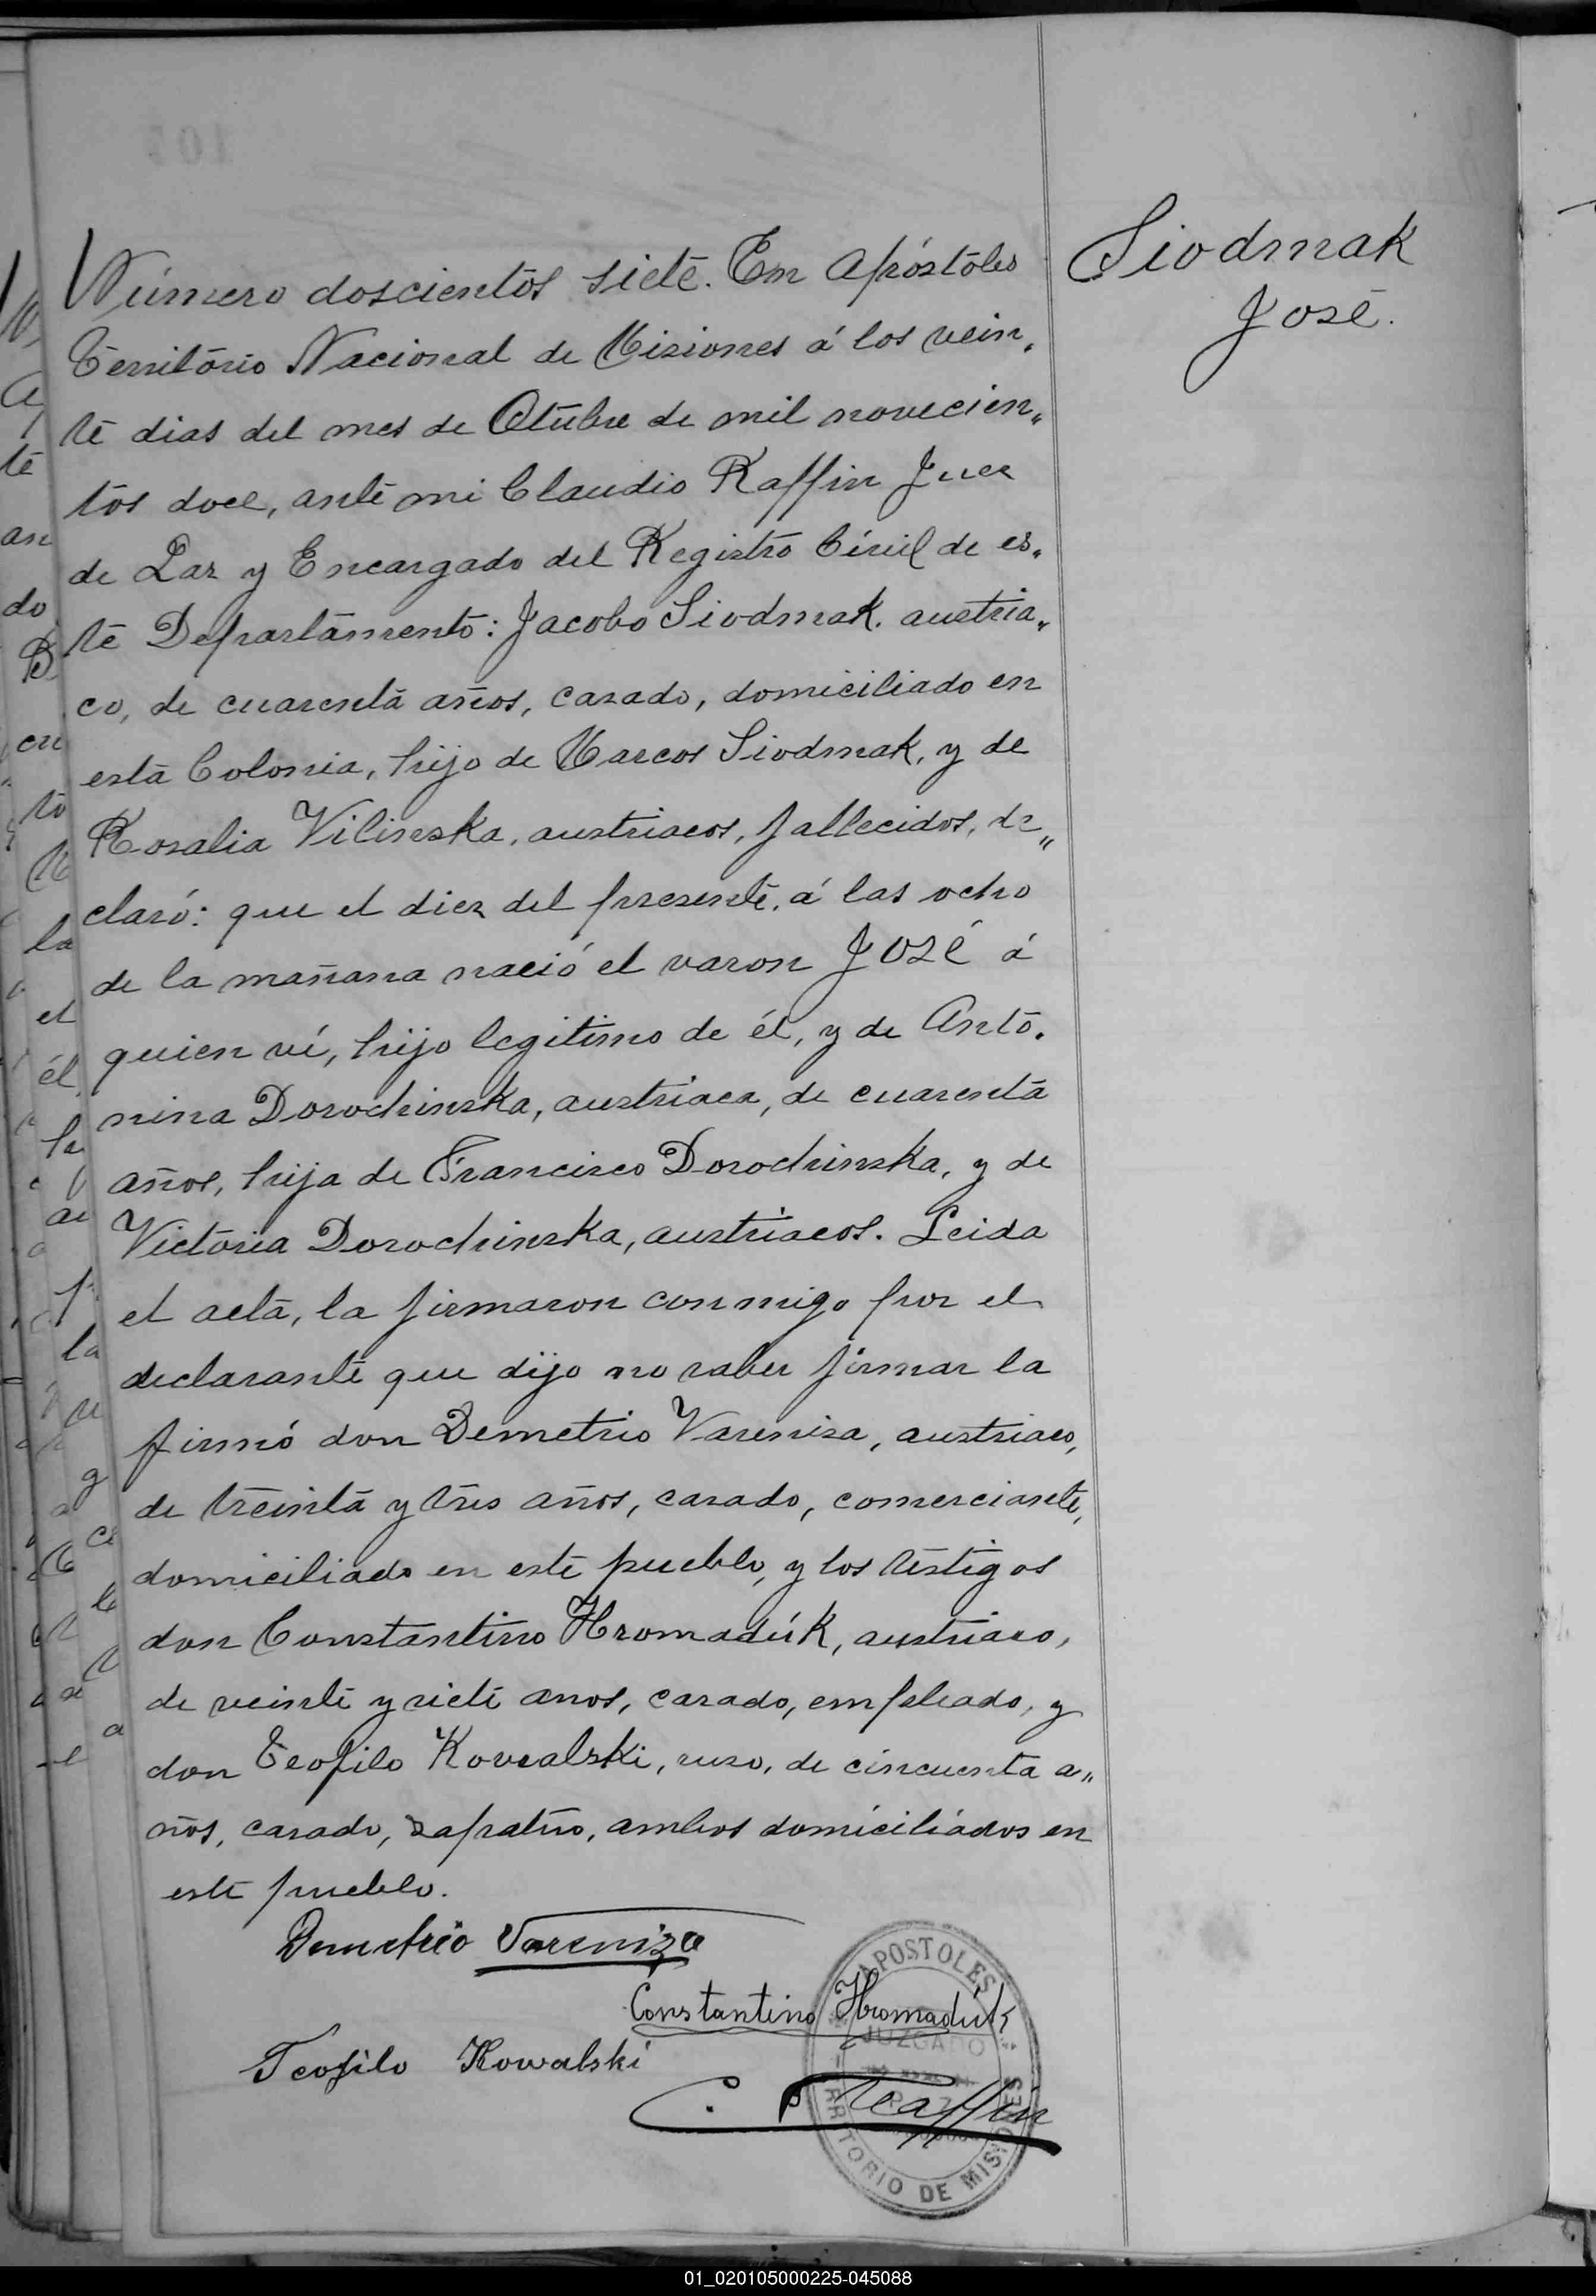 Siodmak
José.
Número doscientos siete. En Apóstoles
Territorio Nacional de Misiones á los vein„
te dias del mes de Otubre de mil novecien„
tos doce, ante mi Claudio Raffin Juez
de Paz y Encargado del Registro Cívil de es„
te Departamento: Jacobo Siodmak. austria„
co, de cuarenta años, casado, domiciliado en
esta Colonia, hijo de Marcos Siodmak, y de
Rosalia Vilineska, austriacos, fallecidos, de„
claró: que el diez del presente, á las ocho
de la mañana nació el varon JOSÉ á
quien ví, hijo legitimo de él, y de Anto„
nina Dorochinska, austriaca, de cuarenta
años, hija de Francisco Dorochinska, y de
Victoria Dorochinska, austriacos. Leida
el acta, la firmaron conmigo por el
declarante que dijo no saber firmar la
firmó don Demetrio Vareniza, austriaco,
de treinta y tres años, casado, comerciante,
domiciliado en este pueblo, y los testigos
don Constantino Hromadúk, austriaco,
de veinte y siete anos, casado, empleado, y
don Teofilo Kovealski, ruso, de cincuenta a„
ños, casado, zapatero, ambos domiciliados en
este pueblo.
Demetrio Vareniza
Constantino Hromadúk
Teofilo Kowalski
C. Raffin
APOSTOLES
JUZGADO
TERRITORIO DE MISIONES
01_020105000225-045088